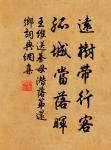 遠樹帶行客
孤城當落暉
王維送綦毋潛落第還
鄉詞典網集